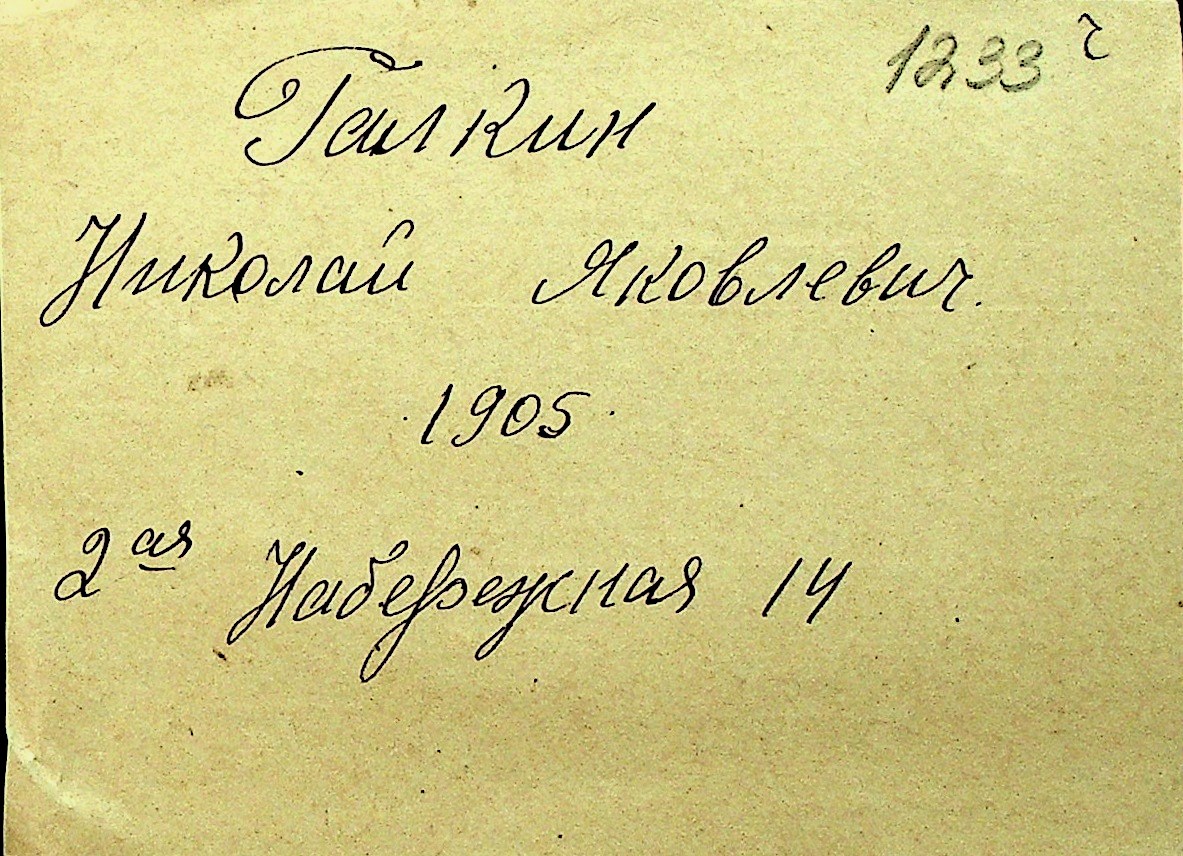 1233
Галкин
Николай Яковлевич.
1905
2ая Набережная 14